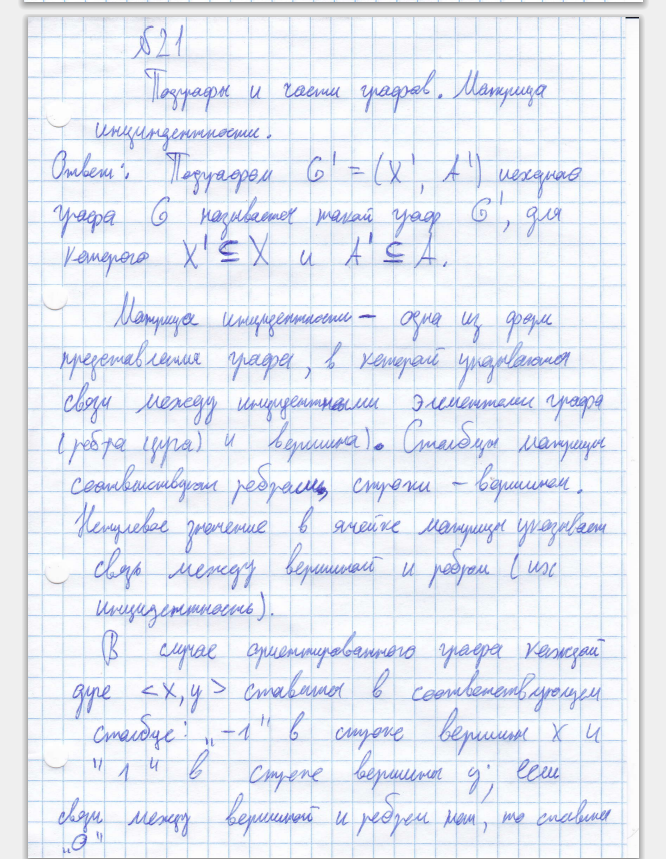 №21
Подграфы и части графов. Матрица
инциндентности.
Ответ: Подграфом G' = (X', A') исходного
графа G называется такой граф G', для
которого X' ⊆ X и A' ⊆ A.
Матрица инцидентности – одна из форм
представления графа, в которой указываются
связи между инцидентными элементами графа
(ребра (дуга) и вершина). Столбцы матрицы
соответствуют ребрам, строки – вершинам.
Ненулевое значение в ячейке матрицы указывает
связь между вершиной и ребром (их
инцидентность).
В случае ориентированного графа каждой
дуге <x, y> ставится в соответствующем
столбце: „-1" в строке вершины x и
"1" в строке вершины y; если
связи между вершиной и ребром нет, то ставится
„0"